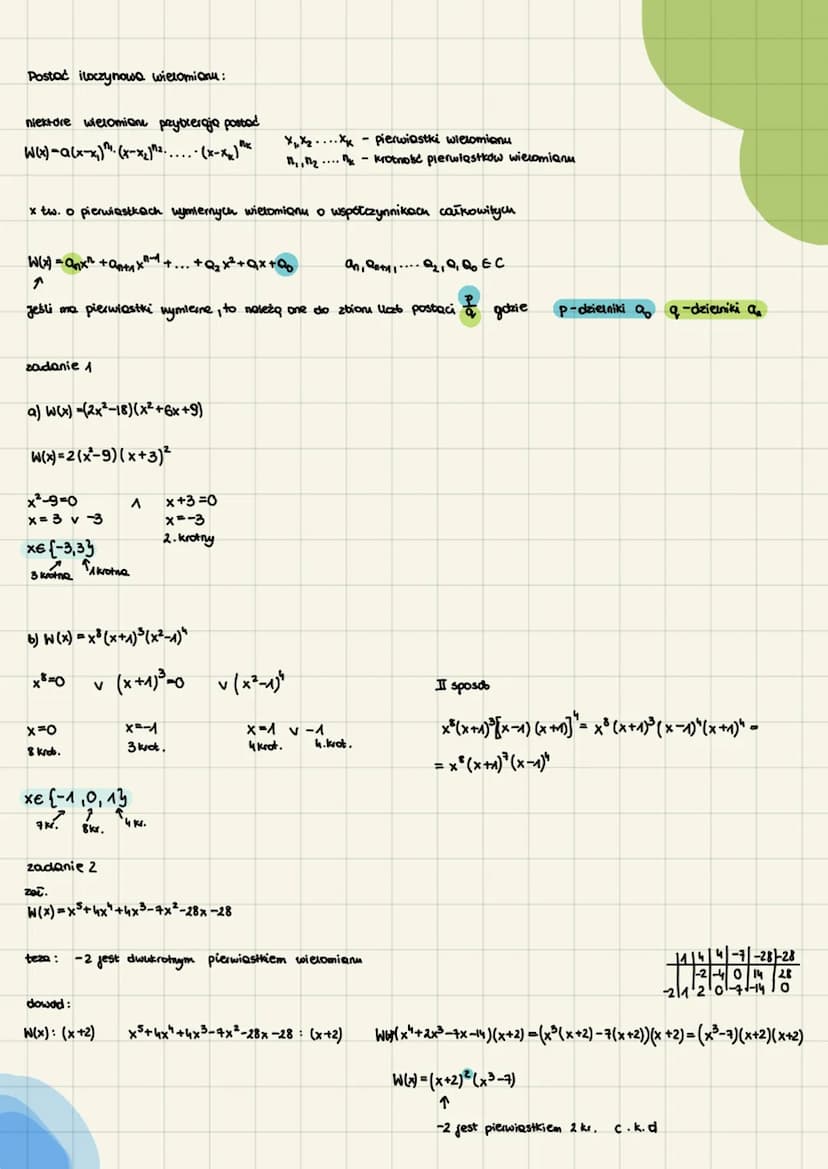 Postać iloczynowa wielomianu:
niektóre wielomiany przybierają postać
W(x)=a(x-x₁)ⁿ¹·(x-x₂)ⁿ²·.....·(x-xₖ)ⁿᵏ
x₁,x₂....xₖ - pierwiastki wielomianu
n₁,n₂....nₖ - krotność pierwiastków wielomianu
* tw. o pierwiastkach wymiernych wielomianu o współczynnikach całkowitych
W(x)=aₙxⁿ+aₙ₊₁xⁿ⁻¹+...+a₂x²+a₁x+a₀ aₙ,aₙ₊₁,....a₂,a₁,a₀ ∈ C
↑
jeśli ma pierwiastki wymierne, to należą one do zbioru liczb postaci p/q gdzie p-dzielniki a₀ q-dzielniki aₙ
zadanie 1
a) W(x)=(2x²-18)(x²+6x+9)
W(x)=2(x²-9)(x+3)²
x²-9=0 ∧ x+3=0
x=3 v -3 x=-3
2.krotny
x∈{-3,3}
3 krotna 1 krotna
b) W(x)=x⁸(x+1)³(x²-1)⁴
x⁸=0 v (x+1)³=0 v (x²-1)⁴
x=0 x=-1 x=1 v -1
8 krot. 3 krot. 4 krot. 4.krot.
II sposób
x⁸(x+1)³[(x-1)(x+1)]⁴= x⁸(x+1)³(x-1)⁴(x+1)⁴=
= x⁸(x+1)⁷(x-1)⁴
x∈{-1,0,1}
7 kr. 8kr. 4 kr.
zadanie 2
zał.
W(x)=x⁵+4x⁴+4x³-7x²-28x-28
teza: -2 jest dwukrotnym pierwiastkiem wielomianu
|1|4|4|-7|-28|-28
| |-2|-4|0|14|28
-2|1|2|0|-7|-14|0
dowód:
W(x):(x+2) x⁵+4x⁴+4x³-7x²-28x-28 : (x+2) W(x)=(x⁴+2x³-7x-14)(x+2)=(x³(x+2)-7(x+2))(x+2)=(x³-7)(x+2)(x+2)
W(x)=(x+2)²(x³-7)
↑
-2 jest pierwiastkiem 2 kr. c.k.d